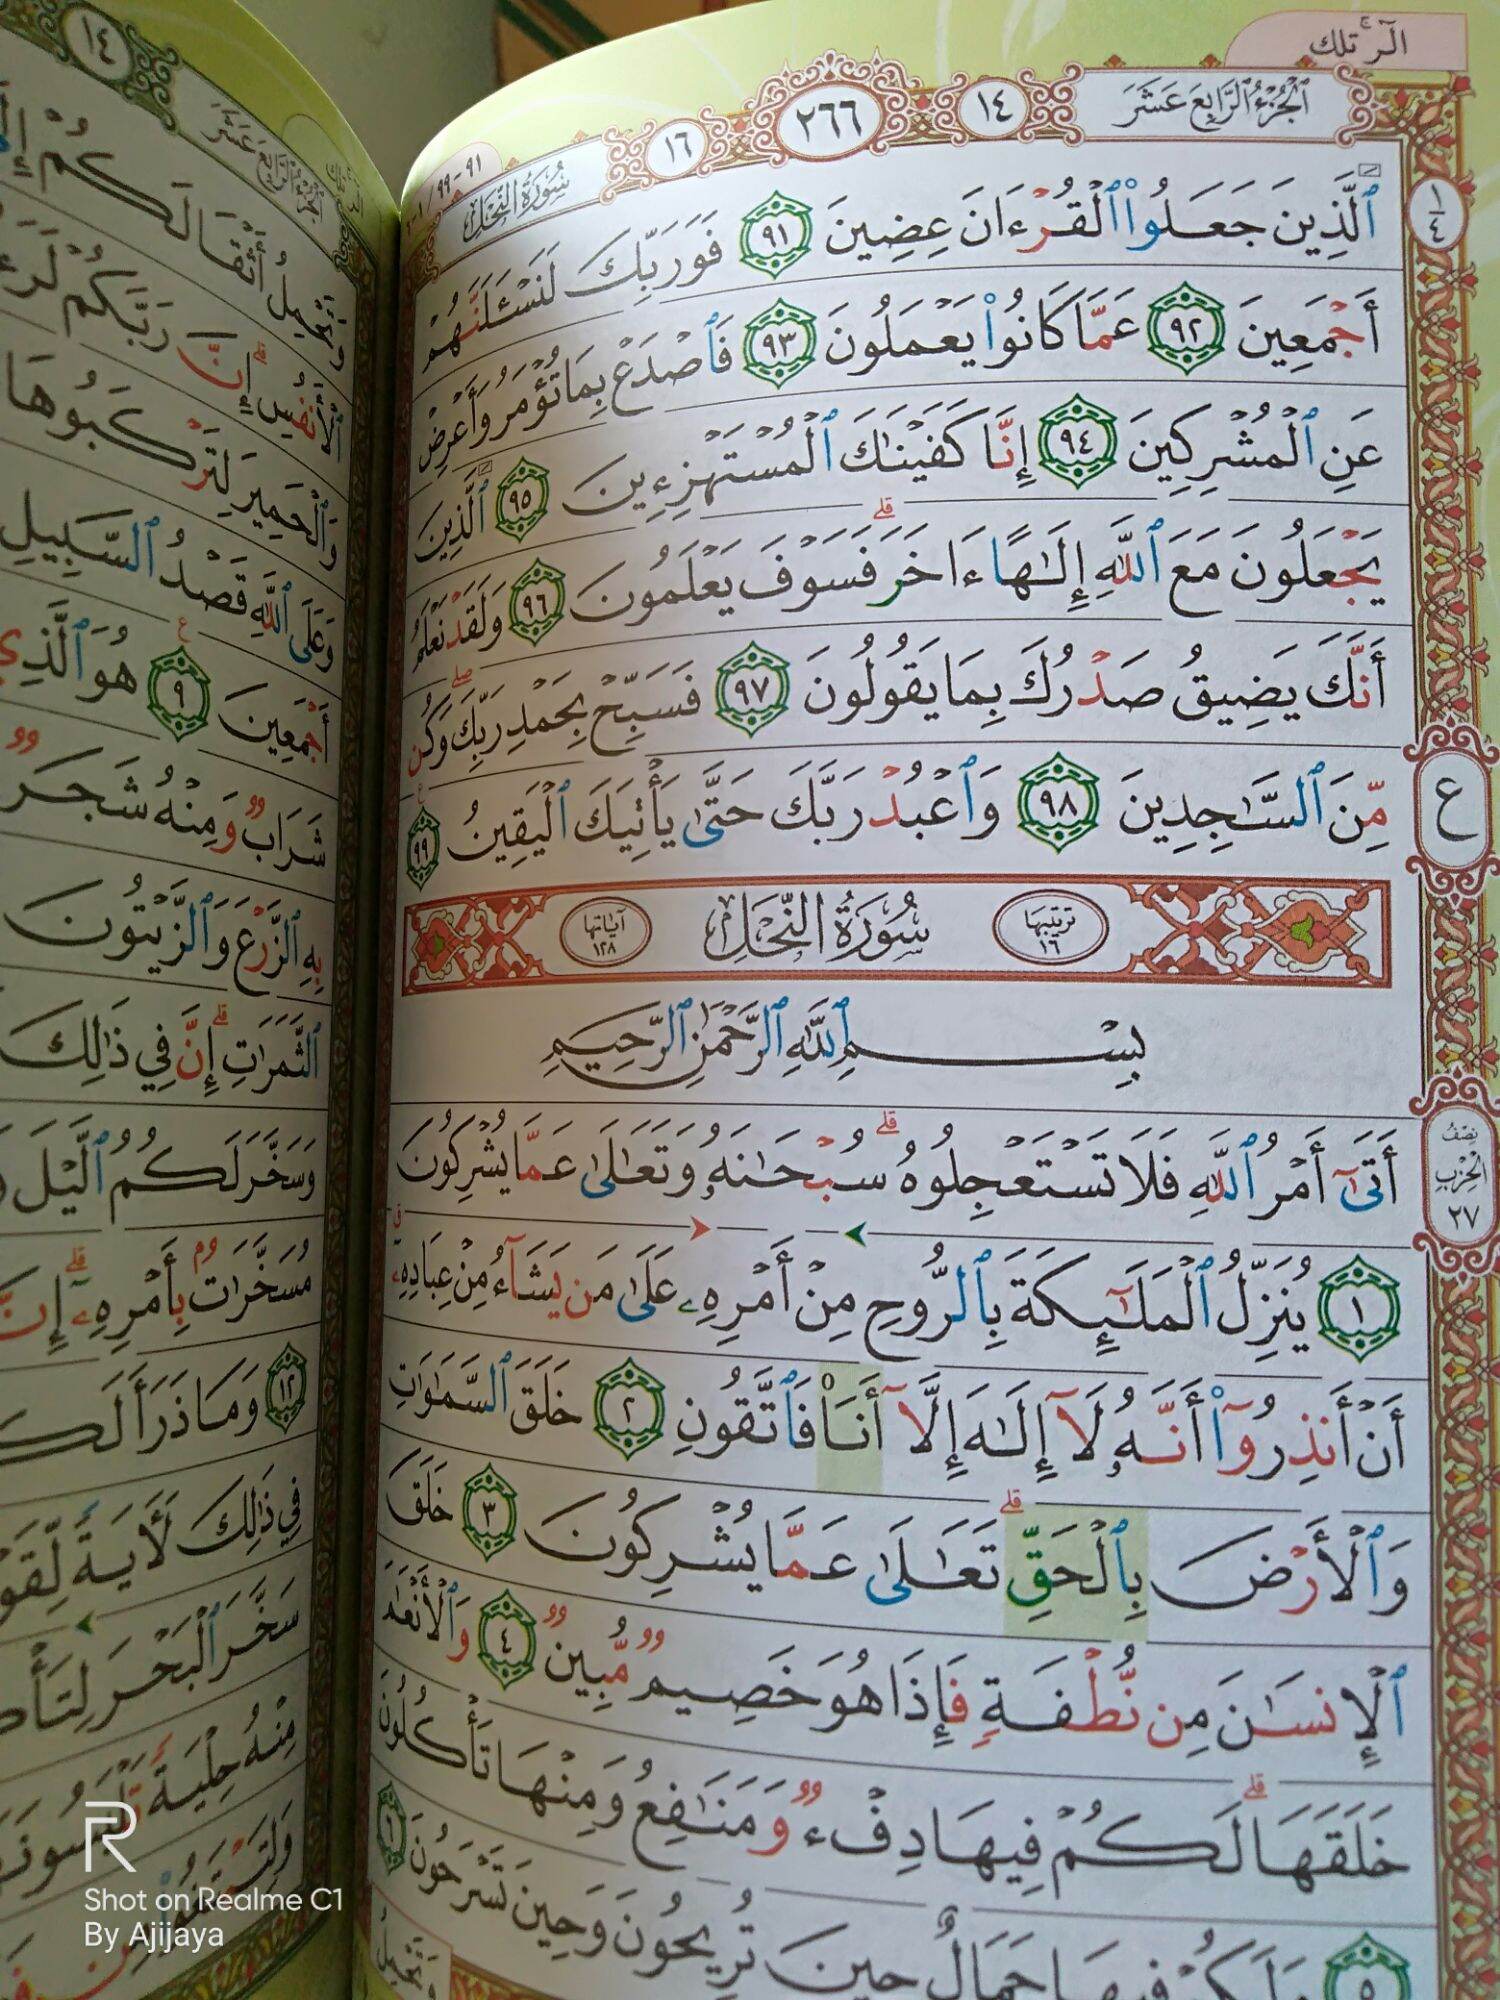 الٓر ۚ تلك
الجُزْءُ الرَّابِعَ عَشَرَ
١٤
٢٦٦
١٦
سُورَةُ النَّحْلِ
٩١-٩٩ /
ٱلَّذِينَ جَعَلُوا۟ ٱلْقُرْءَانَ عِضِينَ ٩١ فَوَرَبِّكَ لَنَسْـَٔلَنَّهُمْ
أَجْمَعِينَ ٩٢ عَمَّا كَانُوا۟ يَعْمَلُونَ ٩٣ فَٱصْدَعْ بِمَا تُؤْمَرُ وَأَعْرِضْ
عَنِ ٱلْمُشْرِكِينَ ٩٤ إِنَّا كَفَيْنَٰكَ ٱلْمُسْتَهْزِءِينَ ٩٥ ٱلَّذِينَ
يَجْعَلُونَ مَعَ ٱللَّهِ إِلَٰهًا ءَاخَرَ ۚ فَسَوْفَ يَعْلَمُونَ ٩٦ وَلَقَدْ نَعْلَمُ
أَنَّكَ يَضِيقُ صَدْرُكَ بِمَا يَقُولُونَ ٩٧ فَسَبِّحْ بِحَمْدِ رَبِّكَ وَكُن
مِّنَ ٱلسَّٰجِدِينَ ٩٨ وَٱعْبُدْ رَبَّكَ حَتَّىٰ يَأْتِيَكَ ٱلْيَقِينُ ٩٩
ترتيبها ١٦ سُورَةُ النَّحْلِ آياتها ١٢٨
بِسْمِ ٱللَّهِ ٱلرَّحْمَٰنِ ٱلرَّحِيمِ
أَتَىٰٓ أَمْرُ ٱللَّهِ فَلَا تَسْتَعْجِلُوهُ ۚ سُبْحَٰنَهُۥ وَتَعَٰلَىٰ عَمَّا يُشْرِكُونَ
١ يُنَزِّلُ ٱلْمَلَٰٓئِكَةَ بِٱلرُّوحِ مِنْ أَمْرِهِۦ عَلَىٰ مَن يَشَآءُ مِنْ عِبَادِهِۦٓ
أَنْ أَنذِرُوٓا۟ أَنَّهُۥ لَآ إِلَٰهَ إِلَّآ أَنَا۠ فَٱتَّقُونِ ٢ خَلَقَ ٱلسَّمَٰوَٰتِ
وَٱلْأَرْضَ بِٱلْحَقِّ ۚ تَعَٰلَىٰ عَمَّا يُشْرِكُونَ ٣ خَلَقَ
ٱلْإِنسَٰنَ مِن نُّطْفَةٍ فَإِذَا هُوَ خَصِيمٌ مُّبِينٌ ٤ وَٱلْأَنْعَٰمَ
خَلَقَهَا ۗ لَكُمْ فِيهَا دِفْءٌ وَمَنَٰفِعُ وَمِنْهَا تَأْكُلُونَ
٥ وَلَكُمْ فِيهَا جَمَالٌ حِينَ تُرِيحُونَ وَحِينَ تَسْرَحُونَ
وَتَحْمِلُ
١/٤
ع
نِصْفُ
الْحِزْبِ
٢٧
١٤
الجُزْءُ الرَّابِعَ عَشَرَ
وَتَحْمِلُ أَثْقَالَكُمْ
ٱلْأَنفُسِ ۚ إِنَّ رَبَّكُمْ
وَٱلْحَمِيرَ لِتَرْكَبُوهَا
وَعَلَى ٱللَّهِ قَصْدُ ٱلسَّبِيلِ
أَجْمَعِينَ ٩ هُوَ ٱلَّذِي
شَرَابٌ وَمِنْهُ شَجَرٌ
بِهِ ٱلزَّرْعَ وَٱلزَّيْتُونَ
ٱلثَّمَرَٰتِ ۗ إِنَّ فِي ذَٰلِكَ
وَسَخَّرَ لَكُمُ ٱلَّيْلَ
مُسَخَّرَٰتٌ بِأَمْرِهِۦٓ ۗ إِنَّ
١٢ وَمَا ذَرَأَ
فِي ذَٰلِكَ لَءَايَةً لِّقَوْ
سَخَّرَ ٱلْبَحْرَ
مِنْهُ حِلْيَةً
Shot on Realme C1
By Ajijaya